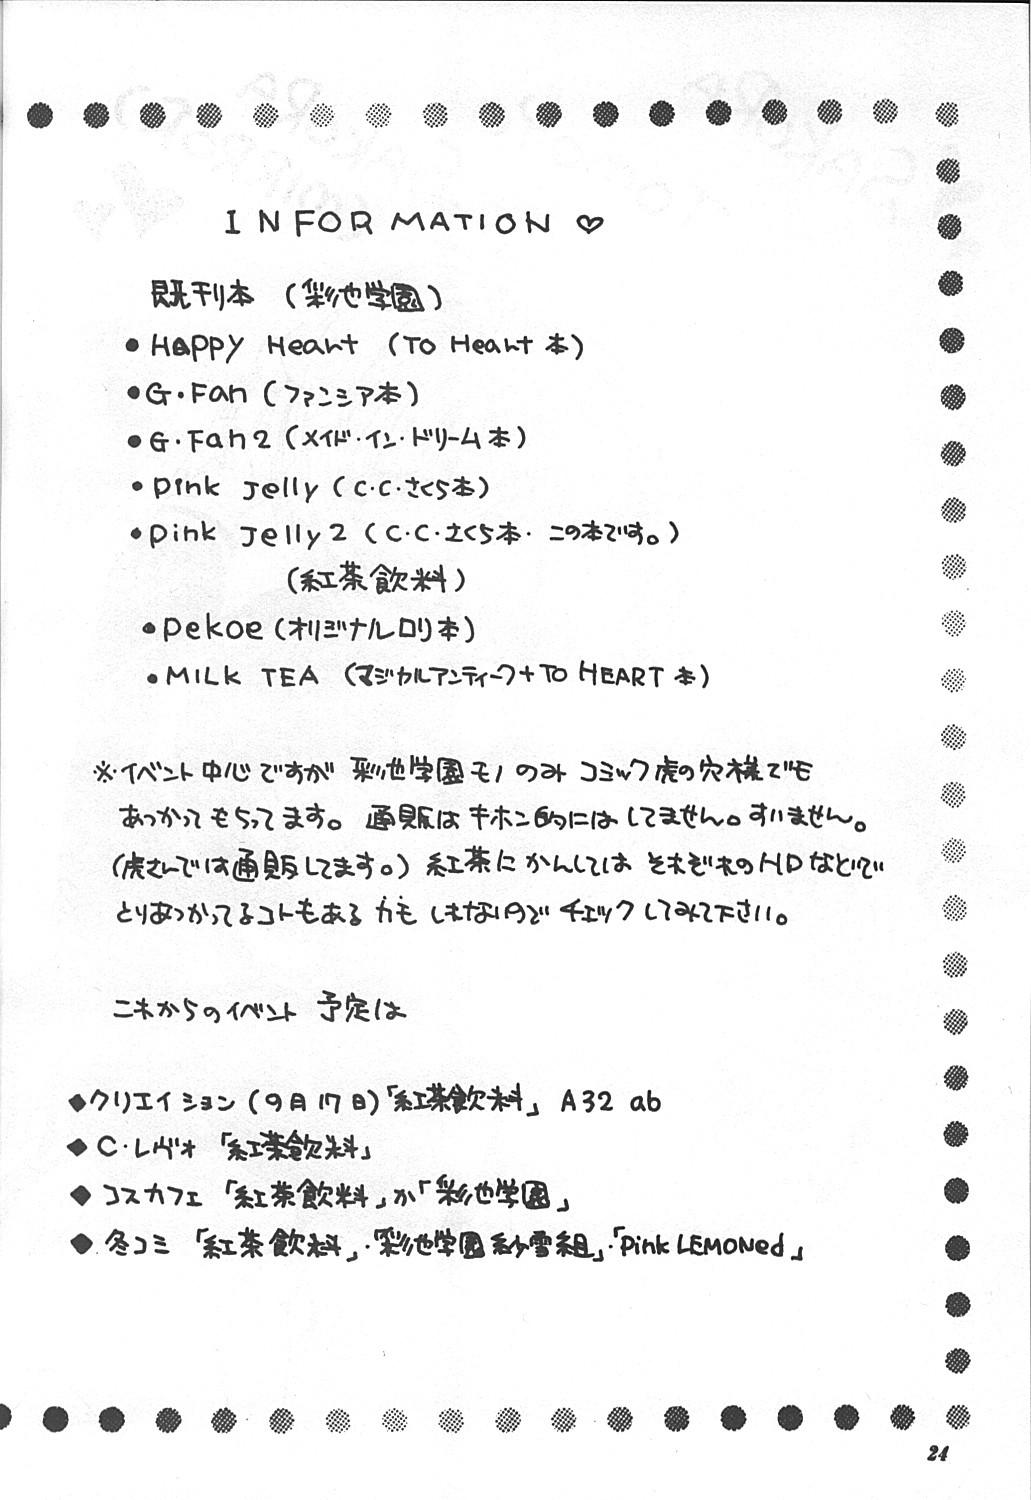 INFORMATION ♡
既刊本 (彩池学園)
● Happy Heart (To Heart 本)
● G・Fan (ファンシア本)
● G・Fan2 (メイド・イン・ドリーム本)
● Pink Jelly (C・C・さくら本)
● Pink Jelly2 (C・C・さくら本・この本です。)
(紅茶飲料)
● Pekoe (オリジナルロリ本)
● MILK TEA (マジカルアンティーク+TO HEART 本)
※イベント中心ですが 彩池学園モノのみ コミック虎の穴様でも
あつかってもらってます。通販はキホン的にはしてません。すいません。
(虎さんでは通販してます。) 紅茶にかんしては それぞれのHPなどで
とりあつかってるコトもあるかもしれないのでチェックしてみて下さい。
これからのイベント 予定は
◆クリエイション (9月17日)「紅茶飲料」 A32 ab
◆ C・レヴォ 「紅茶飲料」
◆ コスカフェ 「紅茶飲料」か「彩池学園」
◆ 冬コミ 「紅茶飲料」・「彩池学園 紗雪組」・「Pink LEMONed」
24